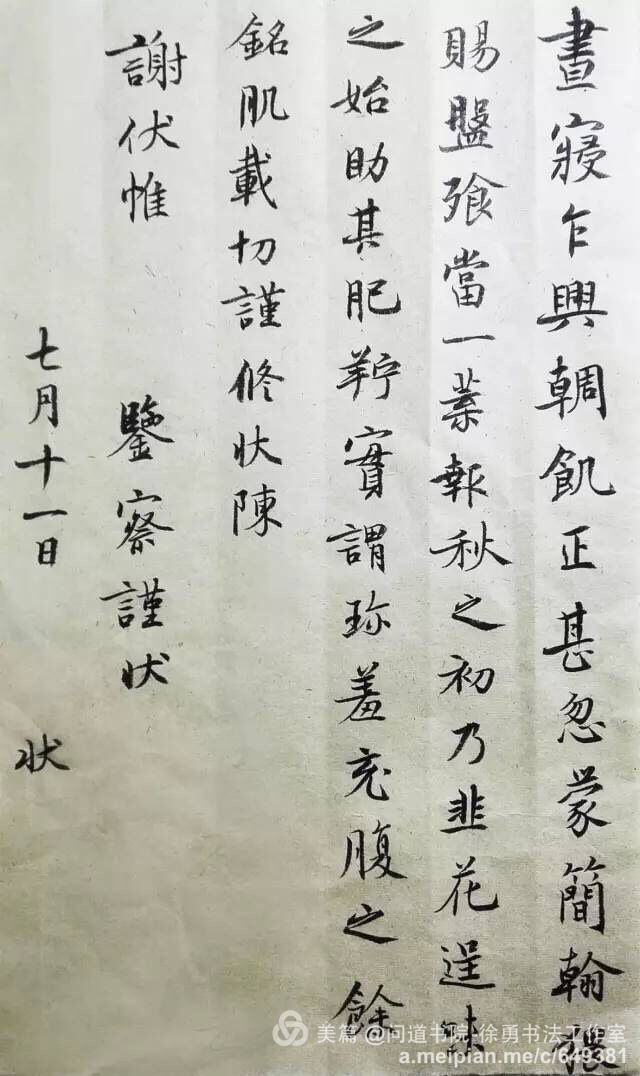 晝寢乍興輖飢正甚忽蒙簡翰猥
賜盤飧當一葉報秋之初乃韭花逞味
之始助其肥羜實謂珍羞充腹之餘
銘肌載切謹修狀陳
謝伏惟 鑒察謹狀
七月十一日 狀
美篇 @问道书院·徐勇书法工作室
a.meipian.me/c/649381